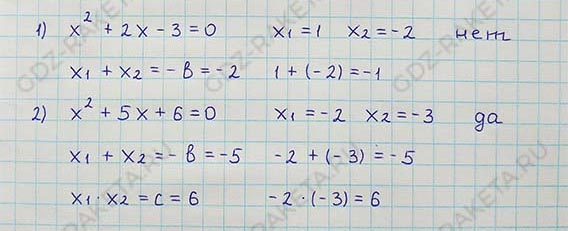 1) x² + 2x - 3 = 0 x₁ = 1 x₂ = -2 нет
x₁ + x₂ = -в = -2 1 + (-2) = -1
2) x² + 5x + 6 = 0 x₁ = -2 x₂ = -3 да
x₁ + x₂ = -в = -5 -2 + (-3) = -5
x₁ · x₂ = c = 6 -2 · (-3) = 6
GDZ-RAKETA.RU